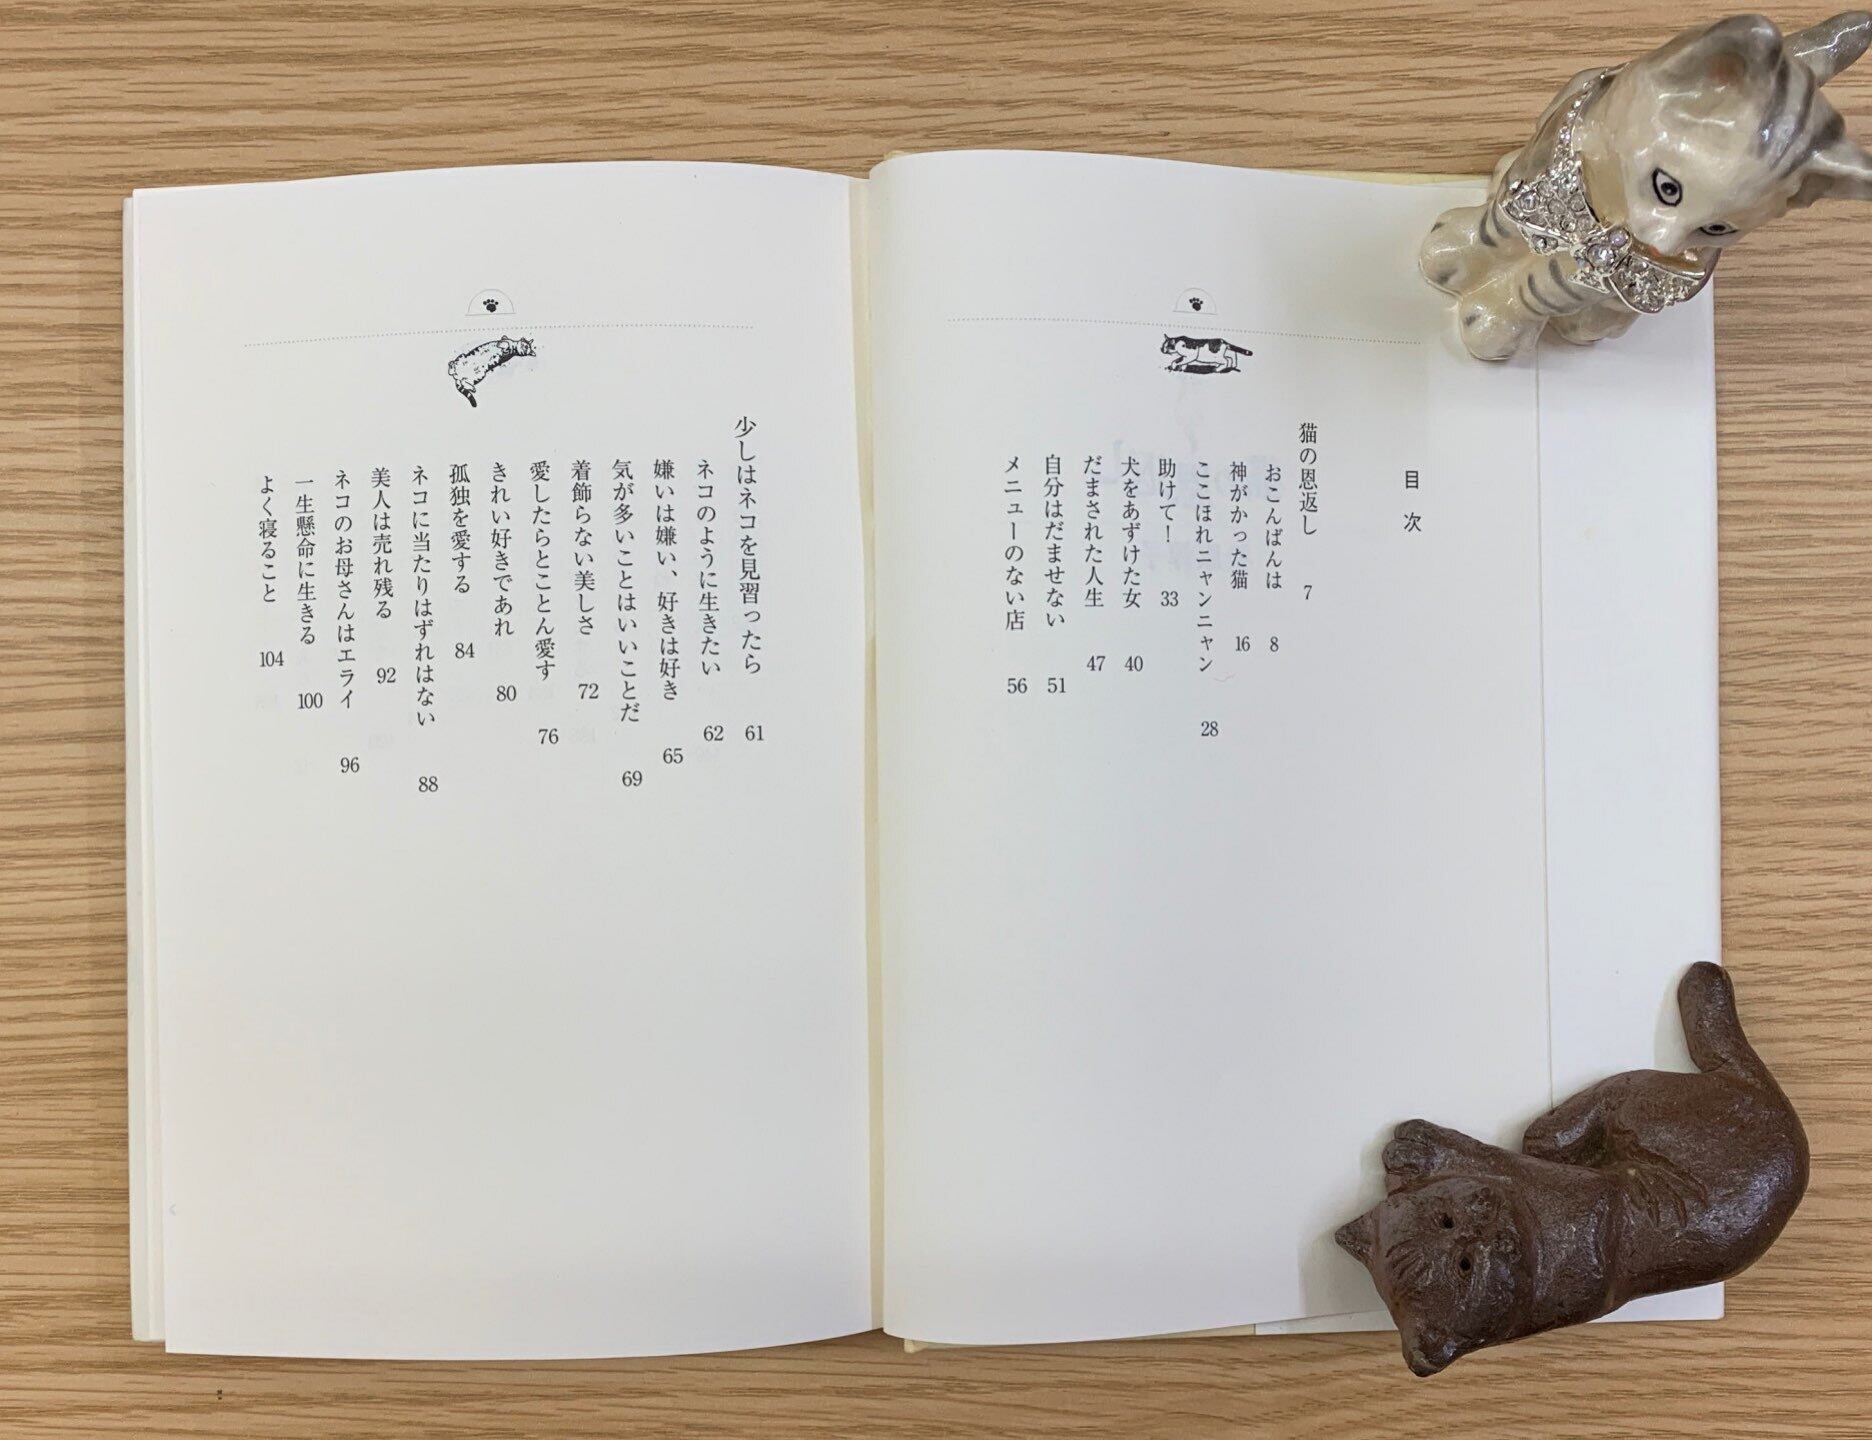 目次
猫の恩返し 7
おこんばんは 8
神がかった猫 16
ここほれニャンニャン 28
助けて! 33
犬をあずけた女 40
だまされた人生 47
自分はだませない 51
メニューのない店 56
少しはネコを見習ったら 61
ネコのように生きたい 62
嫌いは嫌い、好きは好き 65
気が多いことはいいことだ 69
着飾らない美しさ 72
愛したらとことん愛す 76
きれい好きであれ 80
孤独を愛する 84
ネコに当たりはずれはない 88
美人は売れ残る 92
ネコのお母さんはエライ 96
一生懸命に生きる 100
よく寝ること 104